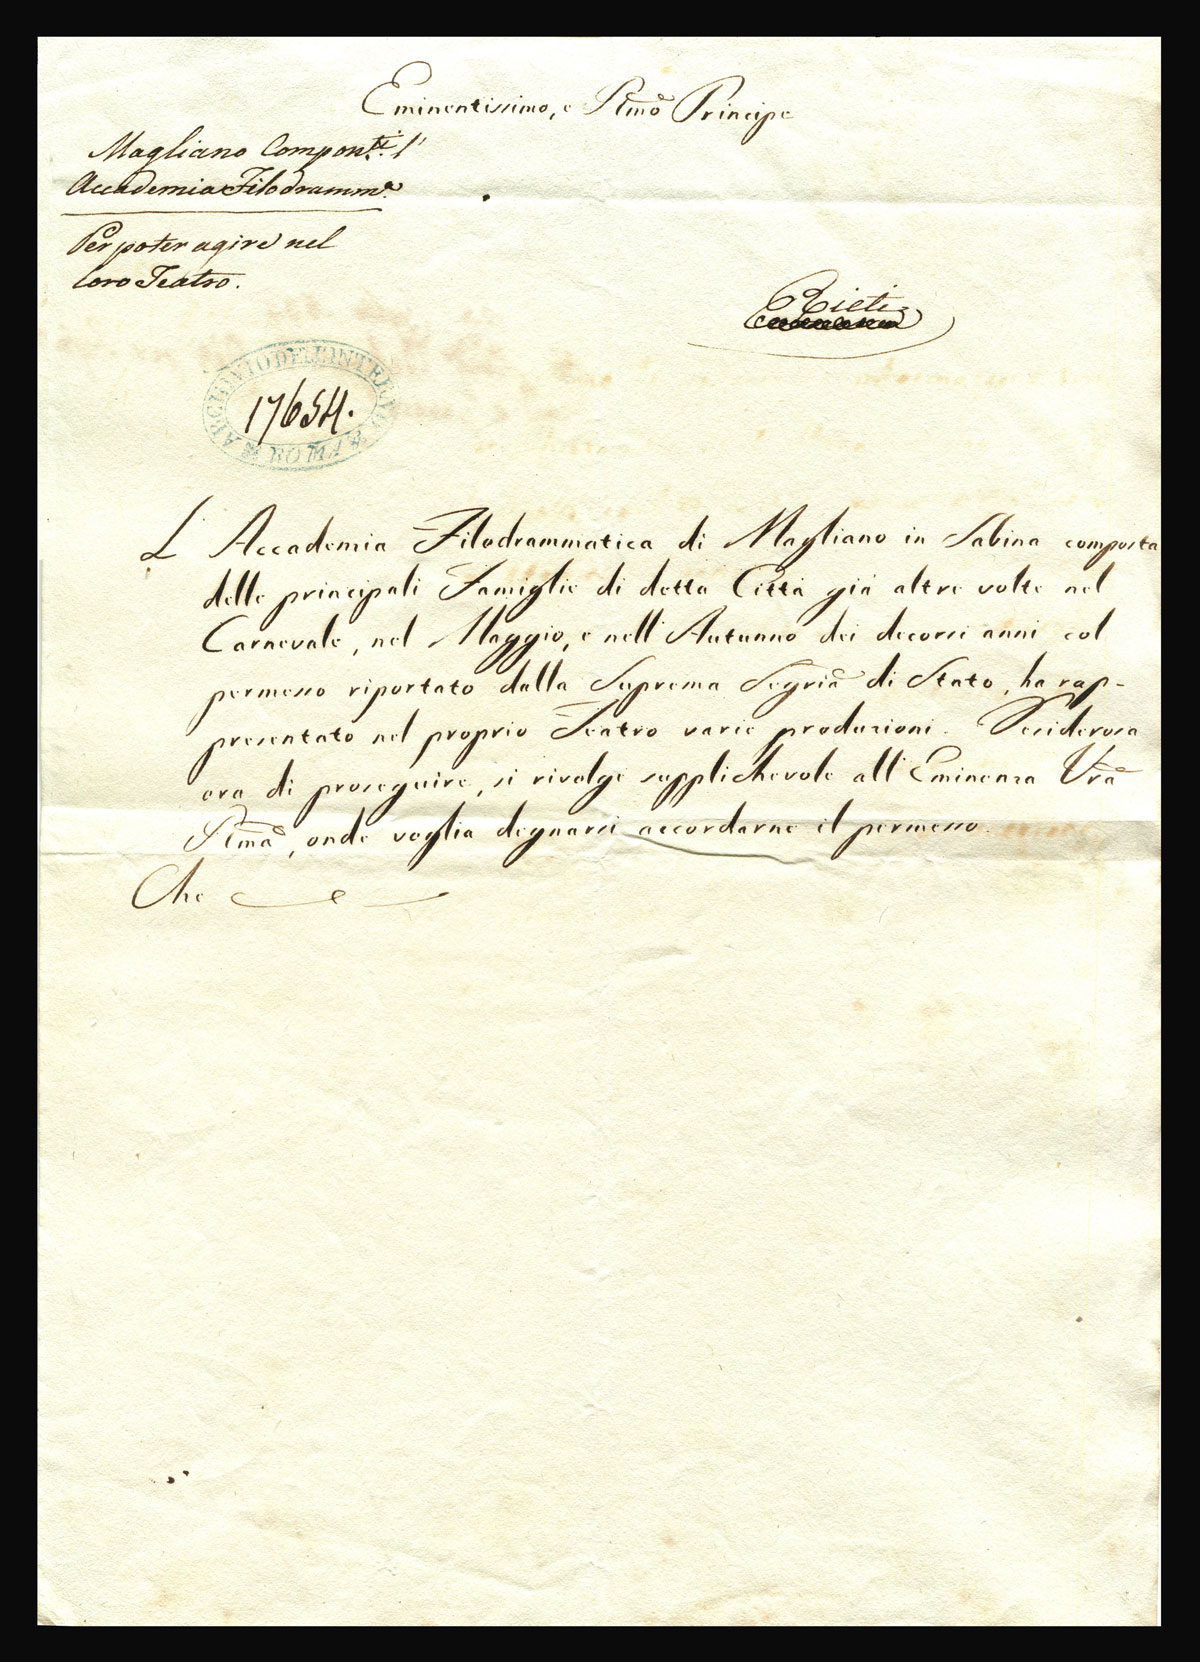 Eminentissimo, e Rmo Principe
Magliano Componti l'
Accademia Filodramma.
Per poter agire nel
loro Teatro.
Rieti
ARCHIVIO DELL'INTERNO
17654.
ROMA
L'Accademia Filodrammatica di Magliano in Sabina composta
delle principali Famiglie di detta Città già altre volte nel
Carnevale, nel Maggio, e nell'Autunno dei decorsi anni col
permesso riportato dalla Suprema Segria di Stato, ha rap-
presentato nel proprio Teatro varie produzioni. Desiderosa
ora di proseguire, si rivolge supplichevole all'Eminenza Vra
Rma, onde voglia degnarsi accordarne il permesso.
Che